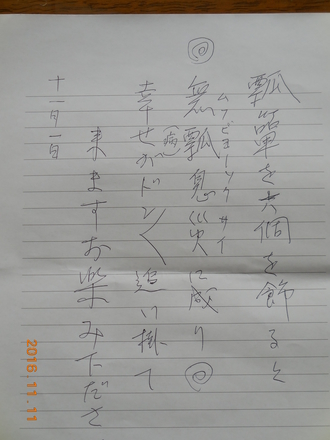 瓢箪を六個を飾ると
◎無瓢息災に成り◎
ムフビヨーソクサイ
(病)
幸せがドン〱追い掛て
来ますお楽み下ださ
十一月一日
2016.11.11